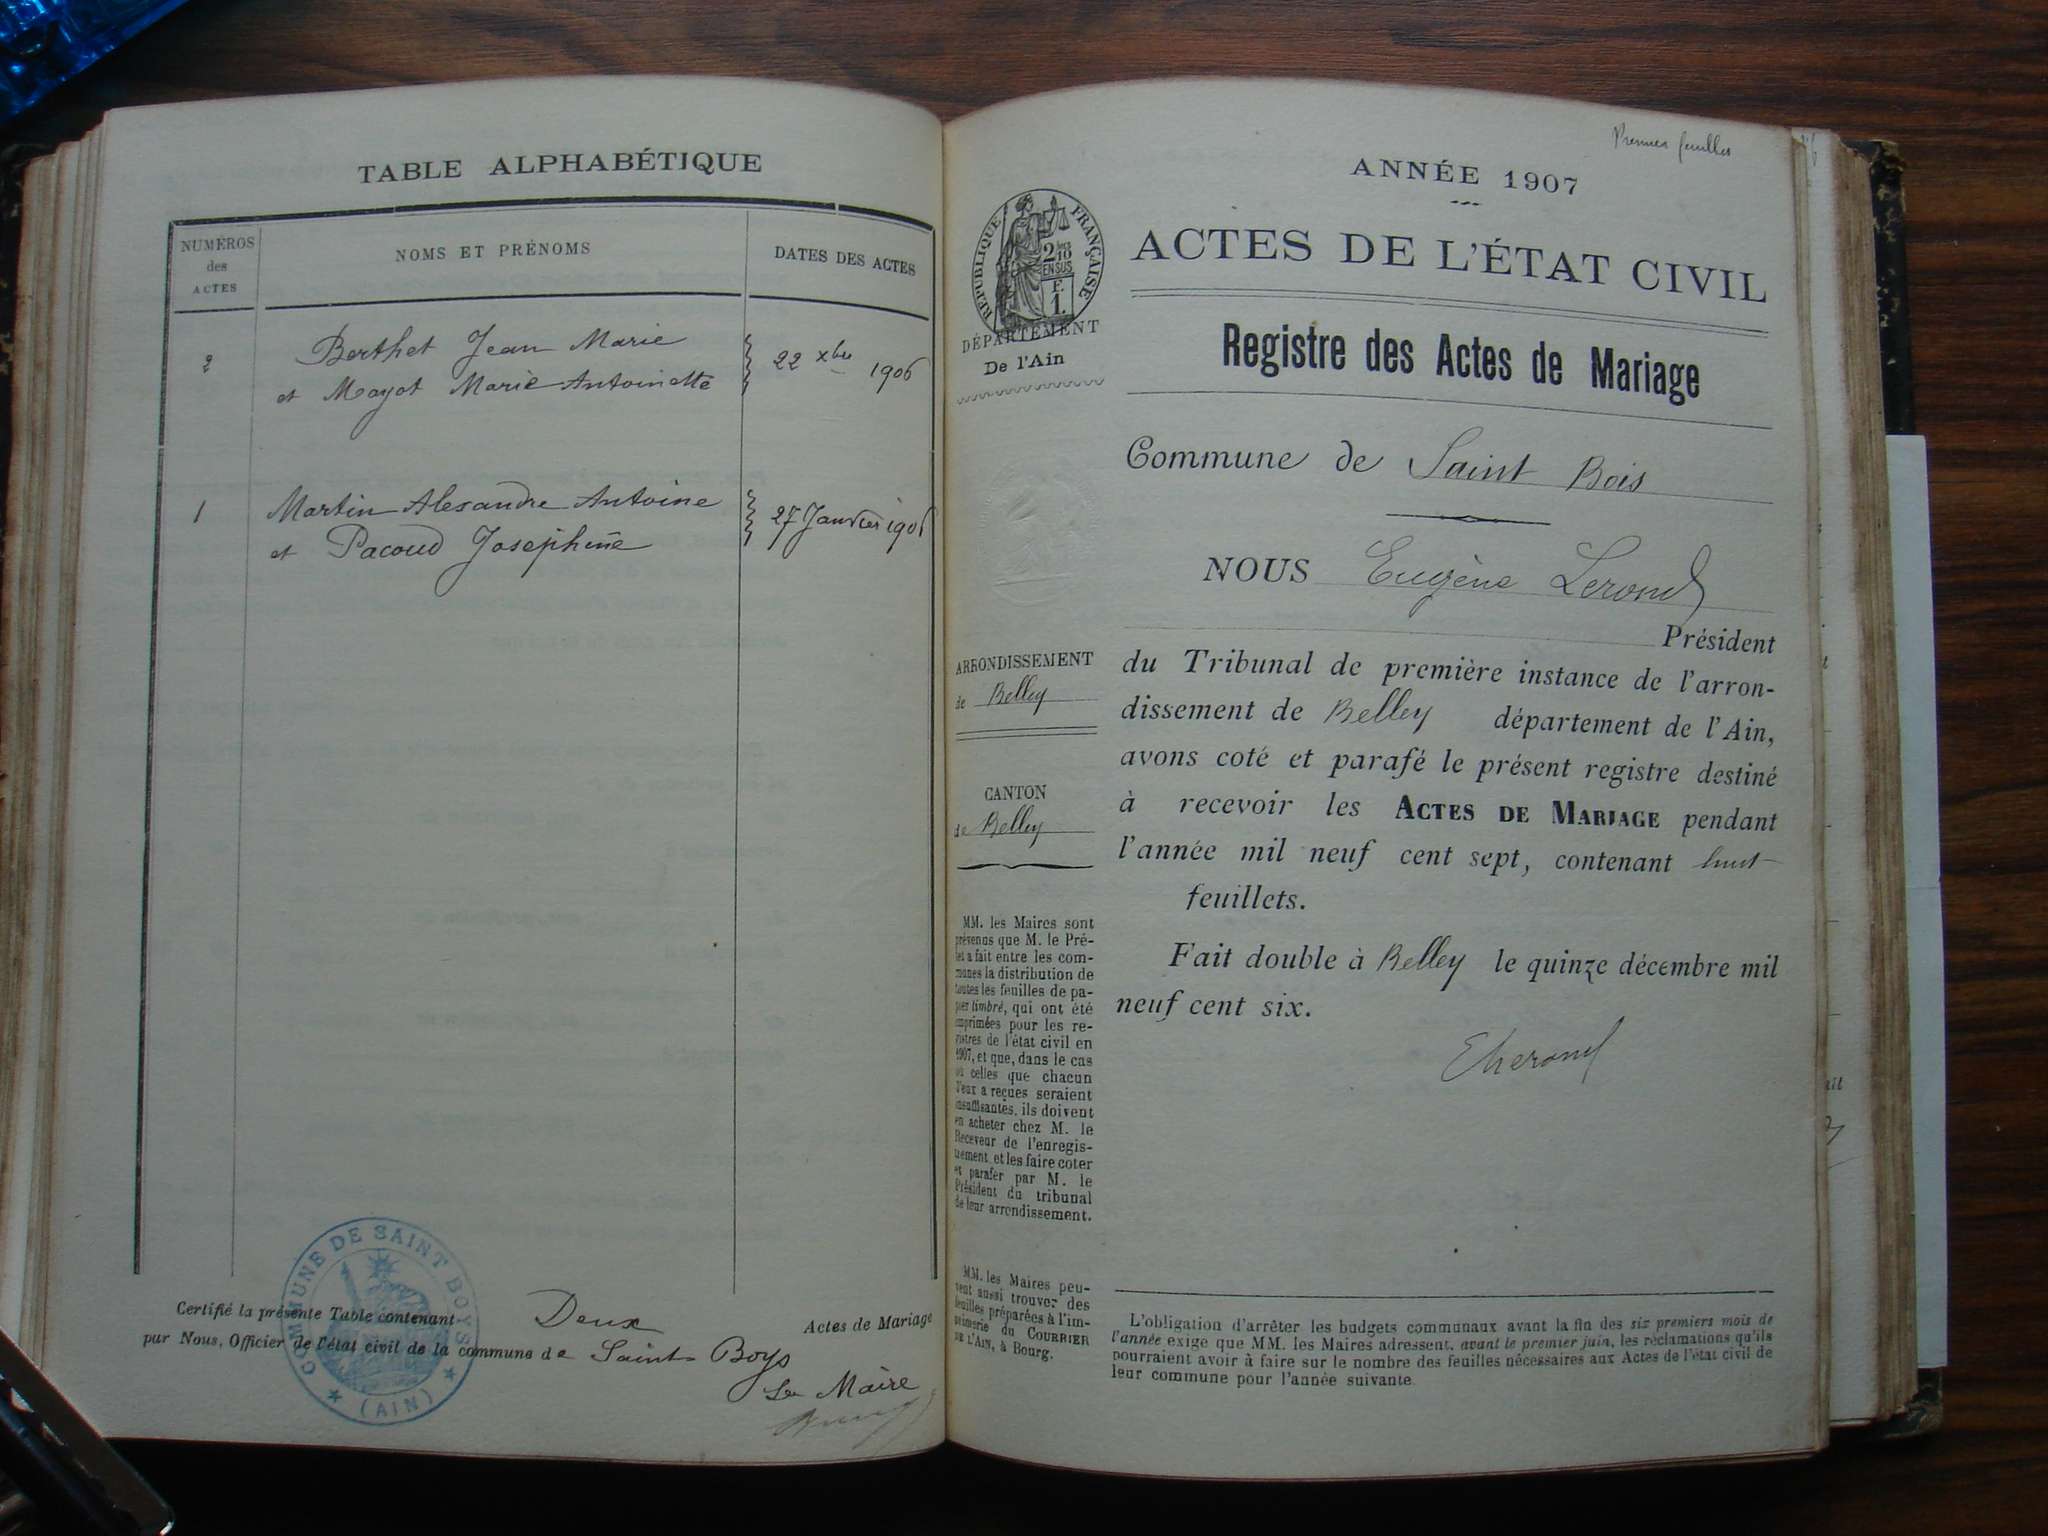 TABLE ALPHABÉTIQUE
NUMÉROS
des
ACTES
NOMS ET PRÉNOMS
DATES DES ACTES
2
Berthet Jean Marie
et Mayot Marie Antoinette
22 xbre 1906
1
Martin Alexandre Antoine
et Pacoud Josephine
27 Janvier 1906
COMMUNE DE SAINT BOYS
(AIN)
Certifié la présente Table contenant Deux Actes de Mariage
par Nous, Officier de l'état civil de la commune de Saint Boys
Le Maire
Premier feuillet
ANNÉE 1907
ACTES DE L'ÉTAT CIVIL
RÉPUBLIQUE FRANÇAISE
2/10
EN SUS
F.
1.
DÉPARTEMENT
De l'Ain
Registre des Actes de Mariage
Commune de Saint Bois
NOUS Eugène Lerond
Président
du Tribunal de première instance de l'arron-
dissement de Belley département de l'Ain,
avons coté et parafé le présent registre destiné
à recevoir les ACTES DE MARIAGE pendant
l'année mil neuf cent sept, contenant huit
feuillets.
Fait double à Belley le quinze décembre mil
neuf cent six.
ARRONDISSEMENT
de Belley
CANTON
de Belley
MM. les Maires sont
prévenus que M. le Pré-
fet a fait entre les com-
munes la distribution de
toutes les feuilles de pa-
pier timbré, qui ont été
imprimées pour les re-
gistres de l'état civil en
1907, et que, dans le cas
où celles que chacun
d'eux a reçues seraient
insuffisantes, ils doivent
en acheter chez M. le
Receveur de l'enregis-
trement et les faire coter
et parafer par M. le
Président du tribunal
de leur arrondissement.
MM. les Maires peu-
vent aussi trouver des
feuilles préparées à l'im-
primerie du COURRIER
DE L'AIN, à Bourg.
L'obligation d'arrêter les budgets communaux avant la fin des six premiers mois de
l'année exige que MM. les Maires adressent, avant le premier juin, les réclamations qu'ils
pourraient avoir à faire sur le nombre des feuilles nécessaires aux Actes de l'état civil de
leur commune pour l'année suivante.